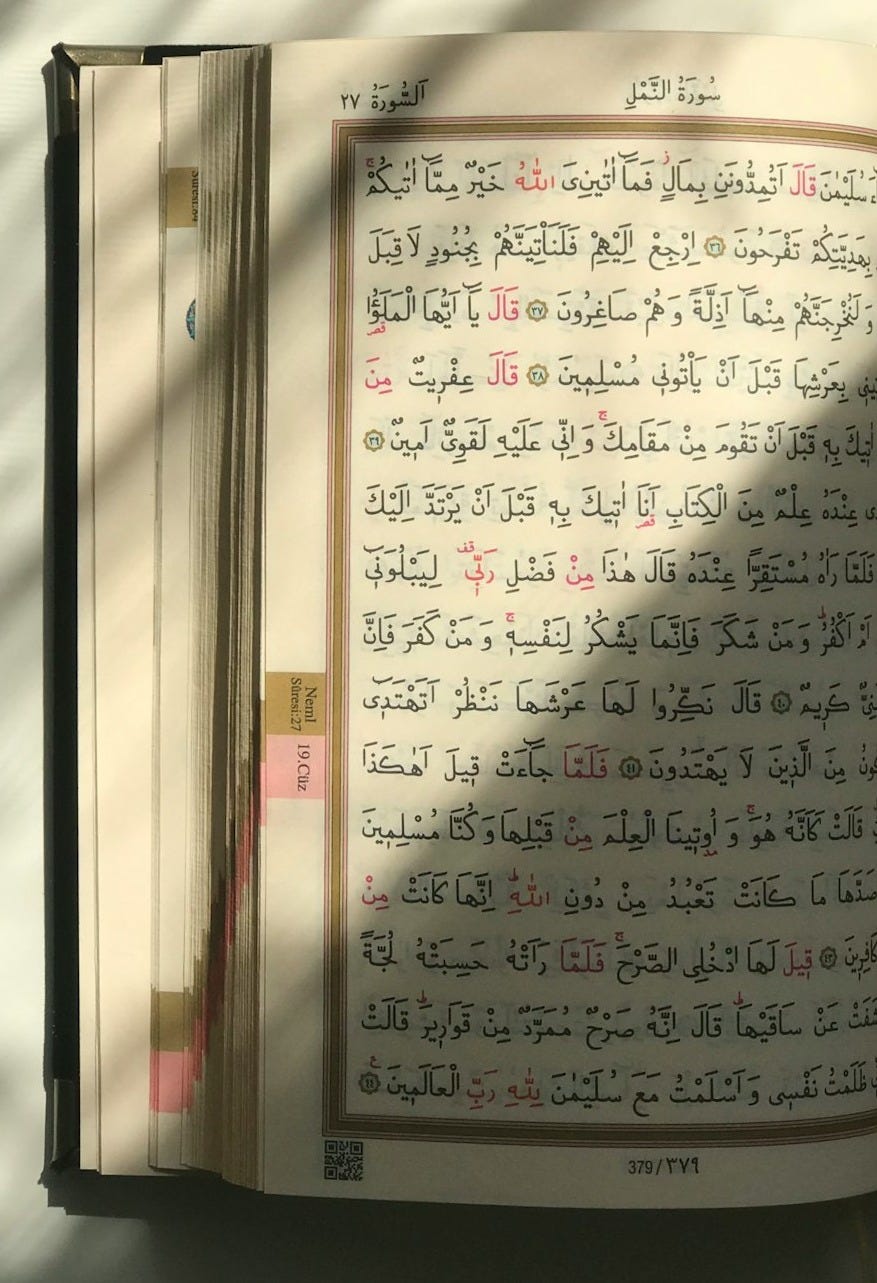 اَلسُّورَةُ ٢٧
سُورَةُ النَّمْلِ
سُلَيْمٰنَ قَالَ اَتُمِدُّونَنِ بِمَالٍ فَمَٓا اٰتٰينِيَ اللّٰهُ خَيْرٌ مِمَّٓا اٰتٰيكُمْ
بِهَدِيَّتِكُمْ تَفْرَحُونَ ﴿٣٦﴾ اِرْجِعْ اِلَيْهِمْ فَلَنَأْتِيَنَّهُمْ بِجُنُودٍ لَا قِبَلَ
وَلَنُخْرِجَنَّهُمْ مِنْهَٓا اَذِلَّةً وَهُمْ صَاغِرُونَ ﴿٣٧﴾ قَالَ يَٓا اَيُّهَا الْمَلَؤُ۬ا
بِعَرْشِهَا قَبْلَ اَنْ يَأْتُون۪ي مُسْلِم۪ينَ ﴿٣٨﴾ قَالَ عِفْر۪يتٌ مِنَ
اٰت۪يكَ بِه۪ قَبْلَ اَنْ تَقُومَ مِنْ مَقَامِكَ وَاِنّ۪ي عَلَيْهِ لَقَوِيٌّ اَم۪ينٌ ﴿٣٩﴾
عِنْدَهُ عِلْمٌ مِنَ الْكِتَابِ اَنَا۬ اٰت۪يكَ بِه۪ قَبْلَ اَنْ يَرْتَدَّ اِلَيْكَ
فَلَمَّا رَاٰهُ مُسْتَقِرًّا عِنْدَهُ قَالَ هٰذَا مِنْ فَضْلِ رَبّ۪ي لِيَبْلُوَن۪ٓي
اَمْ اَكْفُرُ وَمَنْ شَكَرَ فَاِنَّمَا يَشْكُرُ لِنَفْسِه۪ وَمَنْ كَفَرَ فَاِنَّ
كَر۪يمٌ ﴿٤٠﴾ قَالَ نَكِّرُوا لَهَا عَرْشَهَا نَنْظُرْ اَتَهْتَد۪ٓي
مِنَ الَّذ۪ينَ لَا يَهْتَدُونَ ﴿٤١﴾ فَلَمَّا جَٓاءَتْ ق۪يلَ اَهٰكَذَا
قَالَتْ كَاَنَّهُ هُوَ وَاُو۫ت۪ينَا الْعِلْمَ مِنْ قَبْلِهَا وَكُنَّا مُسْلِم۪ينَ
مَا كَانَتْ تَعْبُدُ مِنْ دُونِ اللّٰهِ اِنَّهَا كَانَتْ مِنْ
﴿٤٣﴾ ق۪يلَ لَهَا ادْخُلِي الصَّرْحَ فَلَمَّا رَاَتْهُ حَسِبَتْهُ لُجَّةً
عَنْ سَاقَيْهَا قَالَ اِنَّهُ صَرْحٌ مُمَرَّدٌ مِنْ قَوَار۪يرَ قَالَتْ
ظَلَمْتُ نَفْس۪ي وَاَسْلَمْتُ مَعَ سُلَيْمٰنَ لِلّٰهِ رَبِّ الْعَالَم۪ينَ ﴿٤٤﴾
Neml
Sûresi:27
19.Cüz
379/٣٧٩